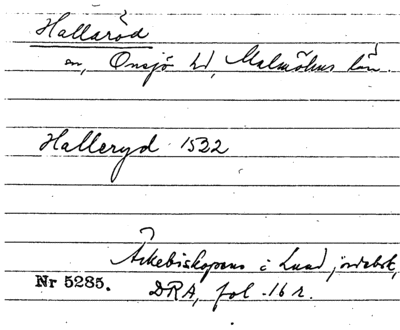 Hallaröd
an, Onsjö hd, Malmöhus län.
Halleryd 1532
Ärkebiskopens i Lund jordebok,
Nr 5285.
DRA, fol. 16 r.